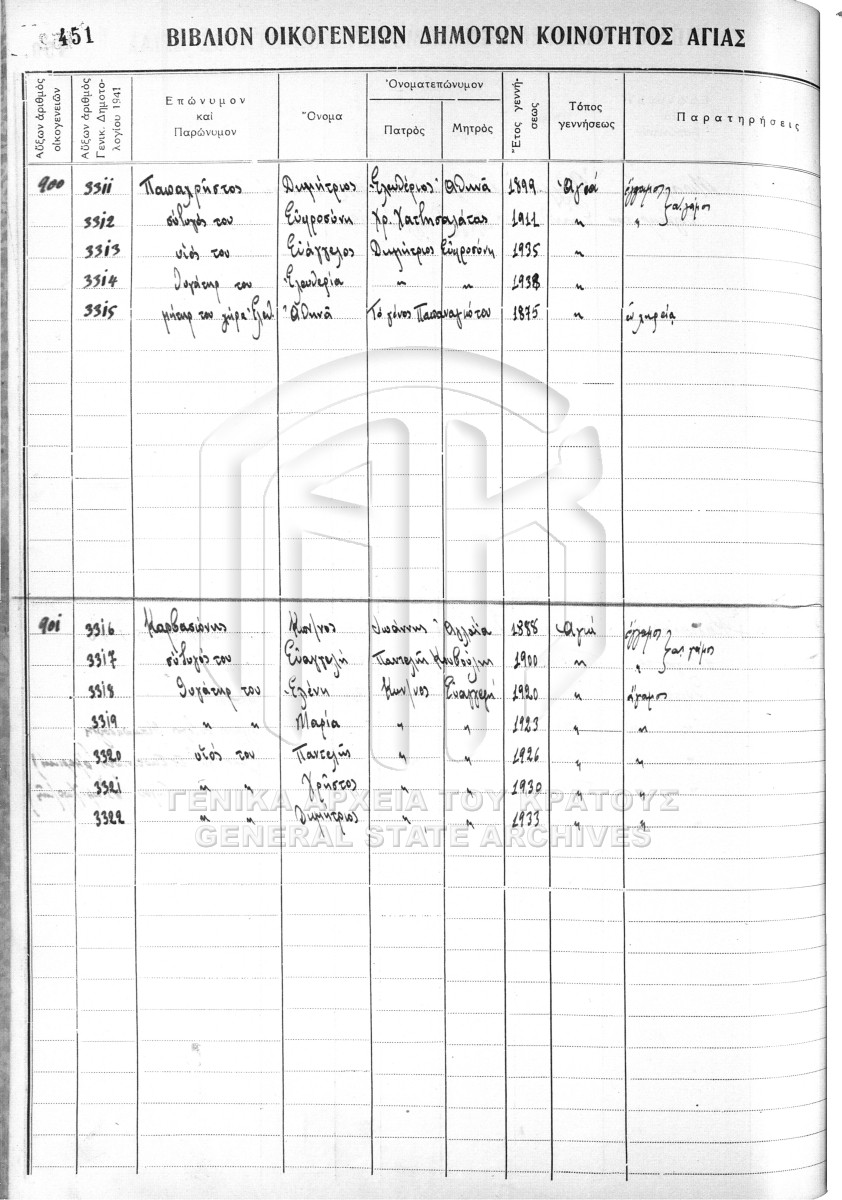 451 ΒΙΒΛΙΟΝ ΟΙΚΟΓΕΝΕΙΩΝ ΔΗΜΟΤΩΝ ΚΟΙΝΟΤΗΤΟΣ ΑΓΙΑΣ
Αὔξων ἀριθμὸς οἰκογενειῶν
Αὔξων ἀριθμὸς Γενικ. Δημοτολογίου 1941
Ἐπώνυμον καί Παρώνυμον
Ὄνομα
Ὀνοματεπώνυμον
Πατρὸς
Μητρὸς
Ἔτος γεννήσεως
Τόπος γεννήσεως
Παρατηρήσεις
900 3311 Παπαχρῆστος Δημήτριος Ἐλευθέριος Ἀθηνᾶ 1899 Ἁγιά ἔγγαμος
3312 σύζυγός του Εὐφροσύνη Χρ. Χατζησαλάτας 1911 〃 〃
3313 υἱός του Εὐάγγελος Δημήτριος Εὐφροσύνη 1935 〃
3314 θυγάτηρ του Ἐλευθερία 〃 〃 1938 〃
3315 μήτηρ του χήρα Ἐλευθ. Ἀθηνᾶ Τό γένος Παπαναγιώτου 1875 〃 ἐν χηρείᾳ
901 3316 Καρβασώνης Κων/νος Ἰωάννης 1888 Ἁγιά ἔγγαμος
3317 σύζυγός του Εὐαγγελή Παντελῆ 1900 〃 〃
3318 θυγάτηρ του Ἑλένη Κων/νος Εὐαγγελή 1920 〃 ἄγαμος
3319 〃 〃 Μαρία 〃 〃 1923 〃 〃
3320 υἱός του Παντελῆς 〃 〃 1926 〃 〃
3321 〃 〃 Χρῆστος 〃 〃 1930 〃 〃
3322 〃 〃 Δημήτριος 〃 〃 1933 〃 〃
ΓΕΝΙΚΑ ΑΡΧΕΙΑ ΤΟΥ ΚΡΑΤΟΥΣ
GENERAL STATE ARCHIVES